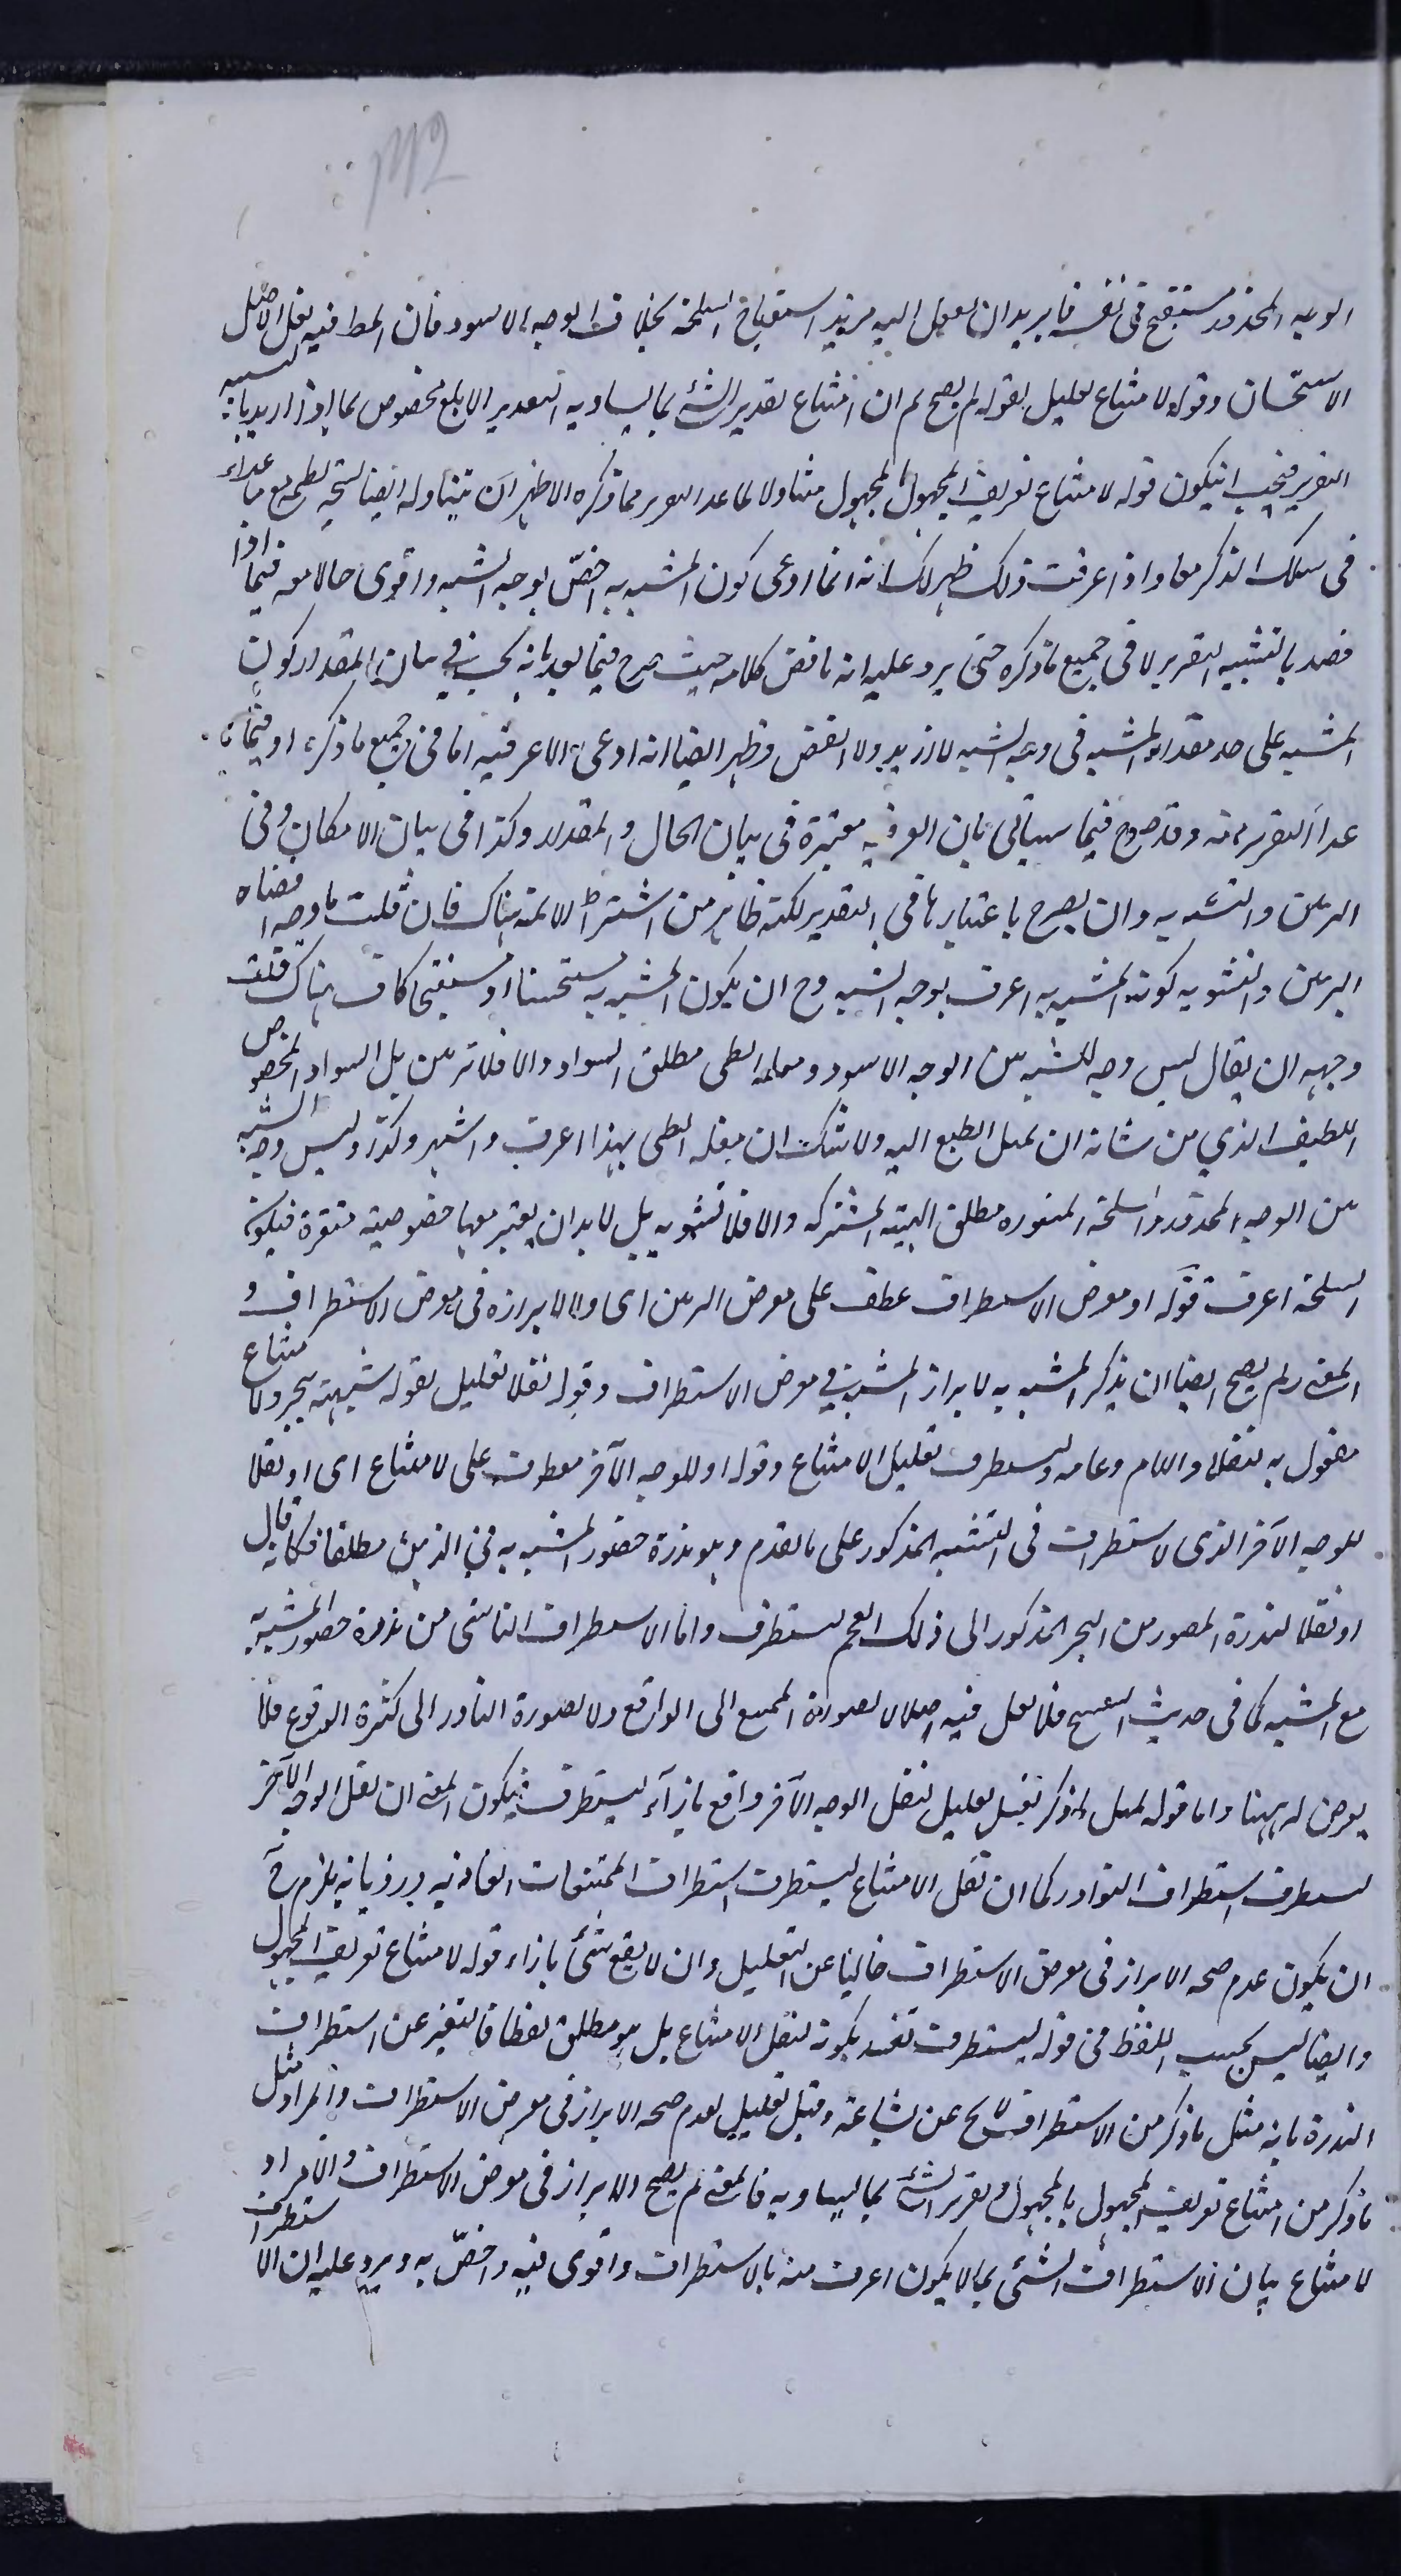 الوجه المجدور مستقبح في نفسه فاريد ان ينقل اليه مزيد استقباح السلحة بخلاف الوجه الاسود فان المط فيه نقل اصل
الاستحسان وقوله لامتناع تعليل لقوله لم يصح ثم ان امتناع تقدير الشئ بما يساويه التقدير الابلغ مخصوص بما اذا اريد بالتشبيه
التقرير فيجب ان يكون قوله لامتناع تعريف المجهول بالمجهول متناولا لما عدا التقرير مما ذكره الاظهر ان يتناوله ايضا مع ما عداه
في سلك الذكر معا واذا عرفت ذلك ظهر لك انه انما ادعى كون المشبه به اخص بوجه الشبه واقوى حالا معه فيما اذا
قصد بالتشبيه التقرير لا في جميع ما ذكره حتى يرد عليه انه ناقض كلامه حيث صرح فيما بعد بانه يجب في بيان المقدار كون
المشبه على حد مقدار المشبه في وجه الشبه لا ازيد ولا انقص وظهر ايضا انه ادعى الاعرفية اما في جميع ما ذكره او فيما
عدا التقرير منه وقد صرح فيما سيأتي بان الاعرفية معتبرة في بيان الحال والمقدار وكذا في بيان الامكان وفي
التزيين والتشويه وان لم يصرح باعتبارها في التقدير لكنه ظاهر من اشتراط الاتمية هناك فان قلت ما وجه اقتضاء
التزيين والتشويه كون المشبه به اعرف بوجه الشبه وح ان يكون المشبه به مستحسنا او مستقبحا كاف هناك قلت
وجهه ان يقال ليس وجه الشبه بين الوجه الاسود ومقلة الظبي مطلق السواد والا فلا تزيين بل السواد المخصوص
اللطيف الذي من شانه ان يميل الطبع اليه ولا شك ان مقلة الظبي بهذا اعرف واشهر وكذا ليس وجه الشبه
بين الوجه المجدور والسلحة المنقورة مطلق الهيئة المشتركة والا فلا تشويه بل لا بد ان يعتبر معها خصوصية منفرة فيكون
السلحة اعرف قوله او معرض الاستطراف عطف على معرض التزيين اى او لابرازه في معرض الاستطراف و
المعنى ولم يصح ايضا ان يذكر المشبه به لابراز المشبه في معرض الاستطراف وقوله نقلا تعليل لقوله شبهته ببحر ولامتناع
مفعول به لنقلا واللام وعامه وليستطرف تعليل الامتناع وقوله او للوجه الآخر معطوف على لامتناع اى او نقلا
للوجه الآخر الذى لاستطراف في التشبيه المذكور على ما تقدم وهو ندرة حضور المشبه به في الذهن مطلقا فكانه قال
او نقلا لندرة الحضور من البحر المذكور الى ذلك الفحم ليستطرف واما الاستطراف الناشى من ندرة حضور المشبه به
مع المشبه كما في حديث البنفسج فلا نقل فيه اصلا لا لصورة الممتنع الى الواقع ولا لصورة النادر الى كثرة الوقوع فلا
يعرض له ههنا واما قوله لمثل ما ذكر فقيل تعليل لنقل الوجه الآخر واقع بازآء ليستطرف فيكون المعنى ان نقل الوجه الآخر
ليستطرف استطراف النوادر كما ان نقل الامتناع ليستطرف استطراف الممتنعات العادية ورد بانه يلزم ح
ان يكون عدم صحة الابراز في معرض الاستطراف خاليا عن التعليل وان لا يقع شئ بازاء قوله لامتناع تعريف المجهول
وايضا ليس بحسب اللفظ في قوله ليستطرف تقييد بكونه لنقل الامتناع بل هو مطلق لفظا فالتعبير عن استطراف
الندرة بانه مثل ما ذكر من الاستطراف لا يخ عن بشاعة وقيل تعليل لعدم صحة الابراز في معرض الاستطراف والمراد مثل
ما ذكر من امتناع تعريف المجهول بالمجهول وتقرير الشئ بما يساويه فالمعنى لم يصح الابراز في معرض الاستطراف
لامتناع بيان الاستطراف الشئ بما لا يكون اعرف منه بالاستطراف واقوى فيه واخص به ويرد عليه ان الاستطراف